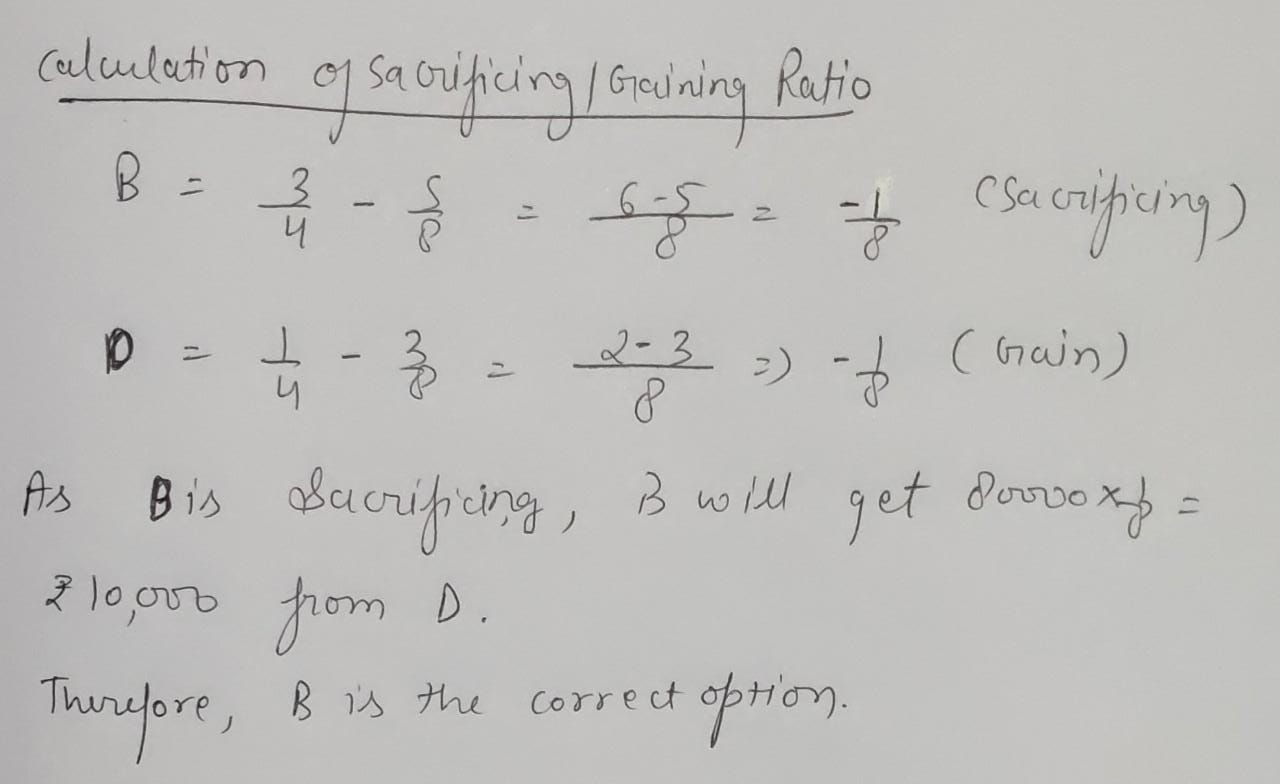 Calculation of Sacrificing / Gaining Ratio
B = 3/4 - 5/8 = 6-5/8 = -1/8 (Sacrificing)
D = 1/4 - 3/8 = 2-3/8 => -1/8 (Gain)
As B is Sacrificing, B will get 80000 x 1/8 =
₹ 10,000 from D.
Therefore, B is the correct option.